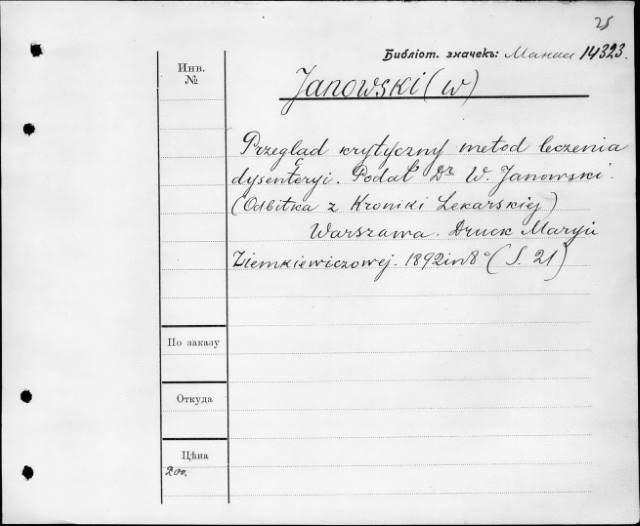 25
Библіот. значекъ: 14323.
Инв.
№
Janowski (W)
Przegląd krytyczny metod leczenia
dysenteryi. Podał Dr W. Janowski.
(Odbitka z Kroniki Lekarskiej)
Warszawa. Druck Maryi
Ziemkiewiczowej. 1892 in 8° (S. 21)
По заказу
Откуда
Цѣна